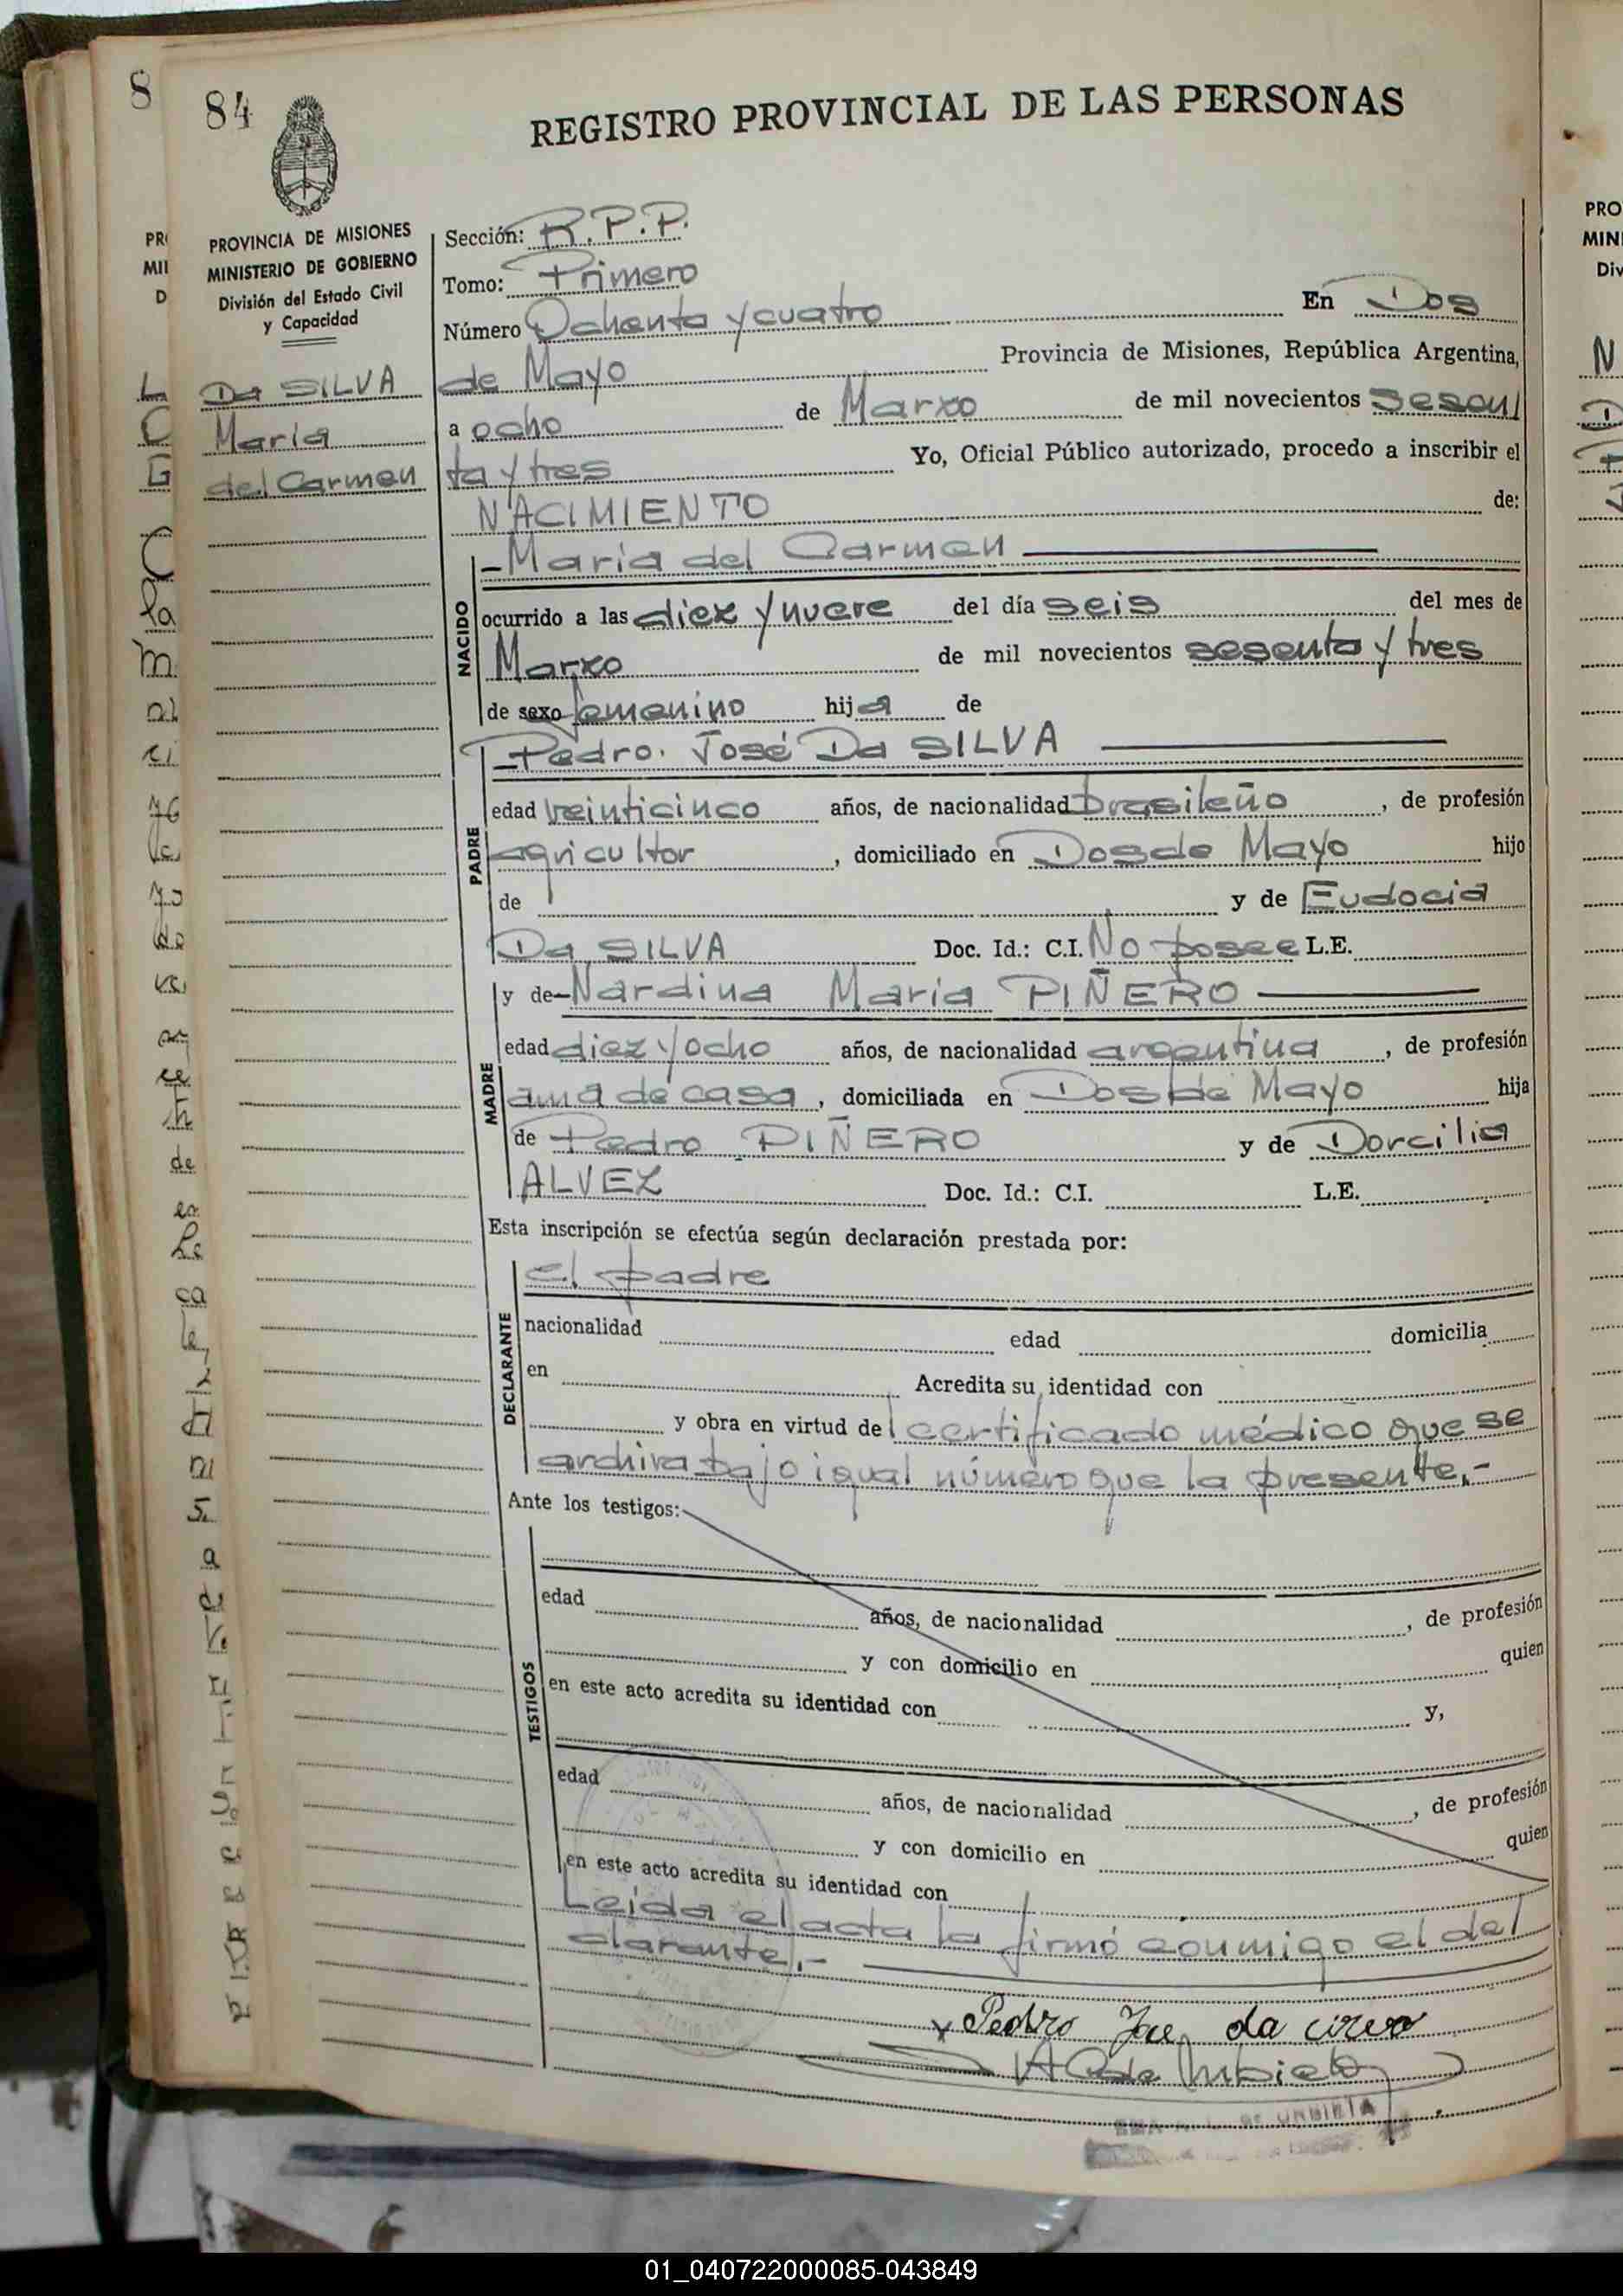 8 84
REGISTRO PROVINCIAL DE LAS PERSONAS
PROVINCIA DE MISIONES
MINISTERIO DE GOBIERNO
División del Estado Civil
y Capacidad
Da SILVA
María
del Carmen
Sección: R.P.P.
Tomo: Primero
Número Ochenta y cuatro En Dos
de Mayo Provincia de Misiones, República Argentina,
a ocho de Marzo de mil novecientos sesen
ta y tres Yo, Oficial Público autorizado, procedo a inscribir el
NACIMIENTO de:
NACIDO
- María del Carmen
ocurrido a las diez y nueve del día seis del mes de
Marzo de mil novecientos sesenta y tres
de sexo femenino hija de
PADRE
Pedro José Da SILVA
edad veinticinco años, de nacionalidad brasileño, de profesión
agricultor, domiciliado en Dos de Mayo hijo
de y de Eudocia
Da SILVA Doc. Id.: C.I. No posee L.E.
MADRE
y de - Nardina María PIÑERO
edad diez y ocho años, de nacionalidad argentina, de profesión
ama de casa, domiciliada en Dos de Mayo hija
de Pedro PIÑERO y de Dorcilia
ALVEZ Doc. Id.: C.I. L.E.
Esta inscripción se efectúa según declaración prestada por:
DECLARANTE
el padre
nacionalidad edad domicilia
en Acredita su identidad con
y obra en virtud del certificado médico que se
archiva bajo igual número que la presente.-
Ante los testigos:
TESTIGOS
edad años, de nacionalidad , de profesión
y con domicilio en quien
en este acto acredita su identidad con y,
edad años, de nacionalidad , de profesión
y con domicilio en quien
en este acto acredita su identidad con
Leída el acta la firmó conmigo el de
clarante.-
x Pedro Joce da cirva
DE URBIETA
PRO
MIN
Div
01_040722000085-043849